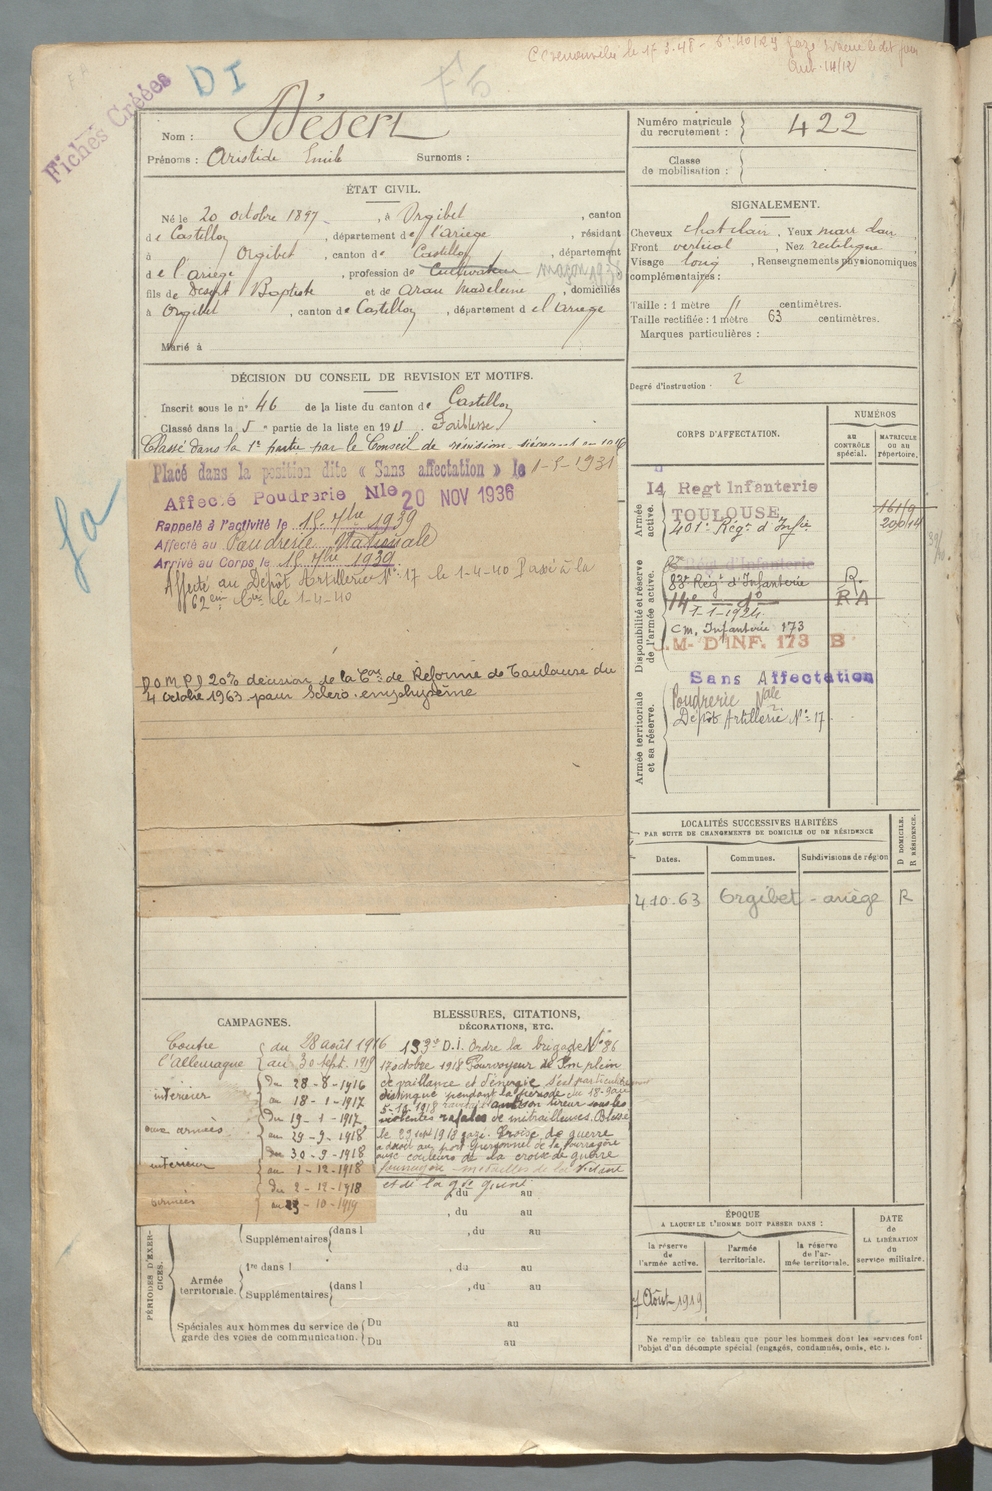 Ccrenouvelée le 17.3.48
Fiches Créées
DI
F5
Nom : Désert
Prénoms : Aristide Emile Surnoms :
Numéro matricule du recrutement : 422
Classe de mobilisation :
ÉTAT CIVIL.
Né le 20 octobre 1897, à Orgibet, canton
de Castillon, département de l'ariège, résidant
à Orgibet, canton de Castillon, département
de l'ariège, profession de Cultivateur maçon 1938
fils de Désert Baptiste et de Arau Madeleine, domiciliés
à Orgibet, canton de Castillon, département de l'ariège
Marié à
SIGNALEMENT.
Cheveux chat clair. Yeux marr clair
Front vertical, Nez rectiligne
Visage long, Renseignements physionomiques
complémentaires :
Taille : 1 mètre // centimètres.
Taille rectifiée : 1 mètre 63 centimètres.
Marques particulières :
Degré d'instruction : 2
DÉCISION DU CONSEIL DE REVISION ET MOTIFS.
Inscrit sous le n° 46 de la liste du canton de Castillon
Classé dans la 5e partie de la liste en 191 . Faiblesse.
Classé dans la 1e partie par le Conseil de révision
Placé dans la position dite « Sans affectation » le 1-5-1931
Affecté Poudrerie Nle 20 NOV 1936
Rappelé à l'activité le 15 7bre 1939
Affecté au Poudrerie Nationale
Arrivé au Corps le 15 7bre 1939
Affecté au Dépôt Artillerie N° 17 le 1-4-40 Passé à la
62ème Cie le 1-4-40
P.O.M.P.I 20% décision de la Con de Réforme de Toulouse du
4 octobre 1963 pour Scléro-emphysème
La
CORPS D'AFFECTATION.
NUMÉROS
au CONTRÔLE spécial.
MATRICULE OU AU répertoire.
Armée active.
14 Regt Infanterie
TOULOUSE
401e Régt d'Infie
16119
20014
Disponibilité et réserve de l'armée active.
83e Régt d'Infanterie R.
14e RA
1-1-1924
CM. Infanterie 173
C.M. D'INF. 173 B
Sans Affectation
Armée territoriale et sa réserve.
Poudrerie Nale
Dépôt Artillerie N° 17
LOCALITÉS SUCCESSIVES HABITÉES
PAR SUITE DE CHANGEMENTS DE DOMICILE OU DE RÉSIDENCE
Dates. Communes. Subdivisions de région D DOMICILE. R RÉSIDENCE.
4.10.63 Orgibet - ariège R
CAMPAGNES.
Contre l'Allemagne du 28 août 1916
au 30 sept. 1919
intérieur du 28-8-1916
au 18-1-1917
aux armées du 19-1-1917
au 29-9-1918
intérieur du 30-9-1918
au 1-12-1918
armées du 2-12-1918
au 23-10-1919
BLESSURES, CITATIONS,
DÉCORATIONS, ETC.
133e D.I. Ordre la brigade N° 86
17 octobre 1918 Pourvoyeur de Fm plein
de vaillance et d'énergie s'est particulièrement
distingué pendant la période du 18-9 au
5-10-1918 son tireur sous les
violentes rafales de mitrailleuses. Blessé
le 29 sept 1918 gazé. Croix de guerre
a droit au port personnel de la fourragère
aux couleurs de la croix de guerre
médailles de la Victoire
et de la gde guerre
PÉRIODES D'EXERCICES.
, du au
, du au
Supplémentaires dans l , du au
Armée territoriale.
1re dans l , du au
Supplémentaires dans l , du au
Spéciales aux hommes du service de garde des voies de communication.
Du au
Du au
ÉPOQUE
A LAQUELLE L'HOMME DOIT PASSER DANS :
la réserve de l'armée active.
l'armée territoriale.
la réserve de l'armée territoriale.
DATE de LA LIBÉRATION du service militaire.
7 Août 1919
Ne remplir ce tableau que pour les hommes dont les services font
l'objet d'un décompte spécial (engagés, condamnés, omis, etc.).